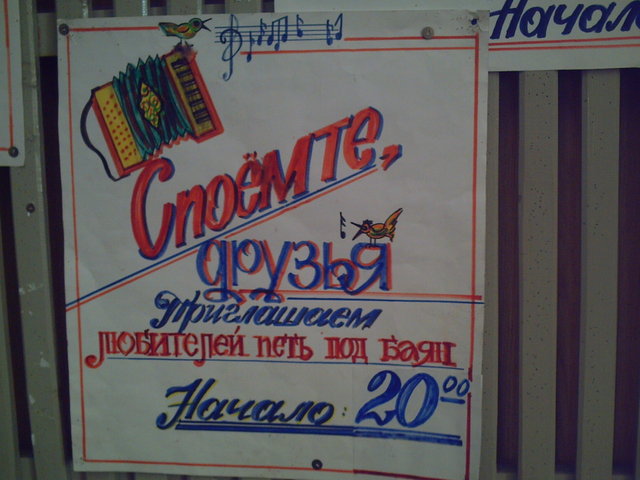 Начало
Споёмте,
друзья
Приглашаем
любителей петь под баян
Начало: 2000